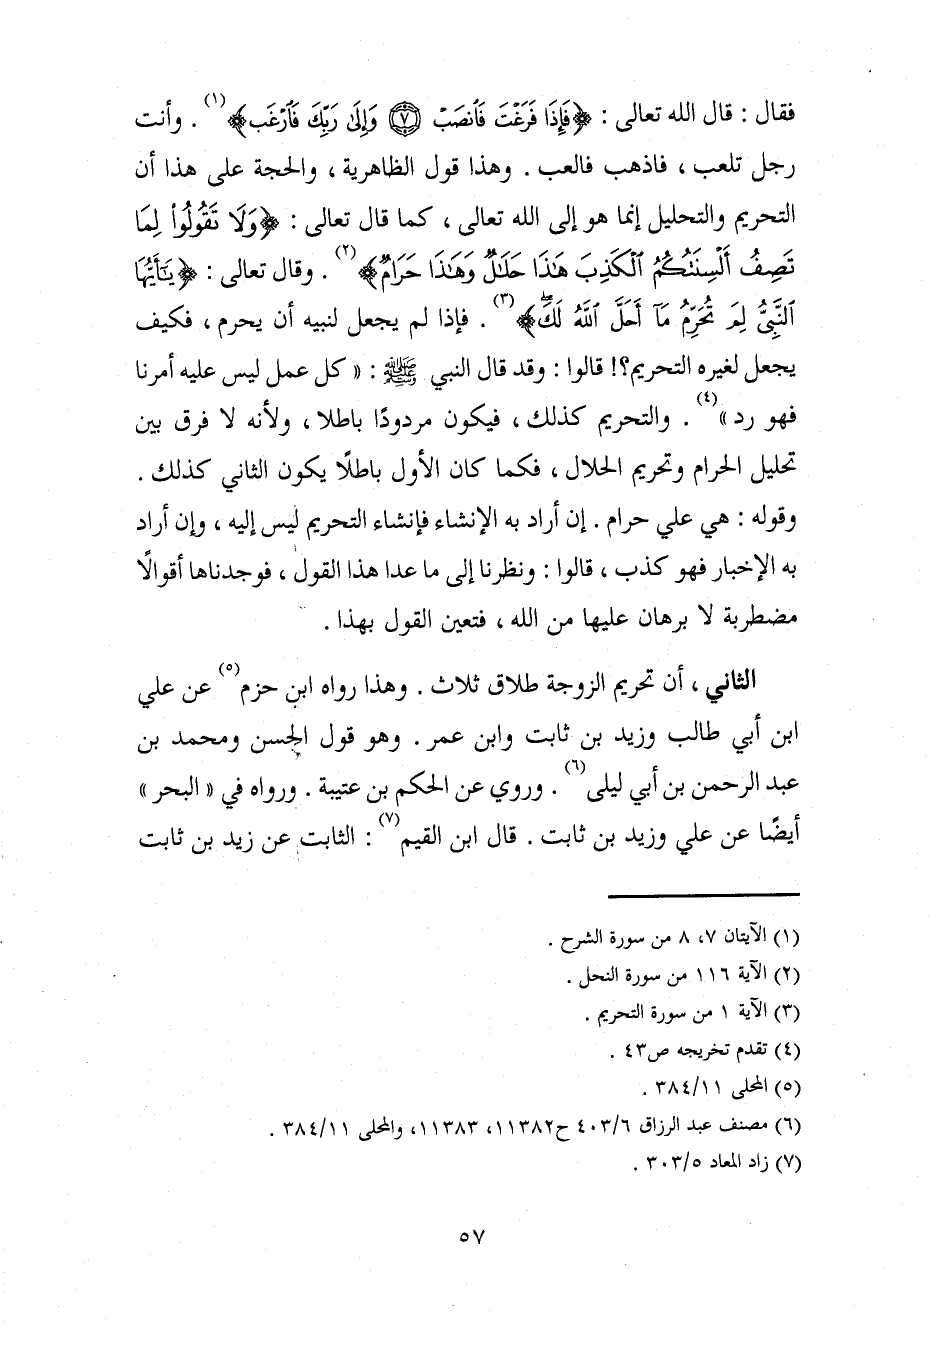 فقال : قال الله تعالى : ﴿فَإِذَا فَرَغْتَ فَٱنصَبْ ۝٧ وَإِلَىٰ رَبِّكَ فَٱرْغَب﴾(١) . وأنت
رجل تلعب ، فاذهب فالعب . وهذا قول الظاهرية ، والحجة على هذا أن
التحريم والتحليل إنما هو إلى الله تعالى ، كما قال تعالى : ﴿وَلَا تَقُولُوا۟ لِمَا
تَصِفُ أَلْسِنَتُكُمُ ٱلْكَذِبَ هَـٰذَا حَلَـٰلٌ وَهَـٰذَا حَرَامٌ﴾(٢) . وقال تعالى : ﴿يَـٰٓأَيُّهَا
ٱلنَّبِىُّ لِمَ تُحَرِّمُ مَآ أَحَلَّ ٱللَّهُ لَكَ﴾(٣) . فإذا لم يجعل لنبيه أن يحرم ، فكيف
يجعل لغيره التحريم؟! قالوا : وقد قال النبي ﷺ : « كل عمل ليس عليه أمرنا
فهو رد »(٤) . والتحريم كذلك ، فيكون مردودًا باطلا ، ولأنه لا فرق بين
تحليل الحرام وتحريم الحلال ، فكما كان الأول باطلًا يكون الثاني كذلك .
وقوله : هي علي حرام . إن أراد به الإنشاء فإنشاء التحريم ليس إليه ، وإن أراد
به الإخبار فهو كذب ، قالوا : ونظرنا إلى ما عدا هذا القول ، فوجدناها أقوالًا
مضطربة لا برهان عليها من الله ، فتعين القول بهذا .
الثاني ، أن تحريم الزوجة طلاق ثلاث . وهذا رواه ابن حزم(٥) عن علي
ابن أبي طالب وزيد بن ثابت وابن عمر . وهو قول الحسن ومحمد بن
عبد الرحمن بن أبي ليلى(٦) . وروي عن الحكم بن عتيبة . ورواه في « البحر »
أيضًا عن علي وزيد بن ثابت . قال ابن القيم(٧) : الثابت عن زيد بن ثابت
(١) الآيتان ٧، ٨ من سورة الشرح .
(٢) الآية ١١٦ من سورة النحل .
(٣) الآية ١ من سورة التحريم .
(٤) تقدم تخريجه ص٤٣ .
(٥) المحلى ٣٨٤/١١ .
(٦) مصنف عبد الرزاق ٤٠٣/٦ ح١١٣٨٢، ١١٣٨٣، والمحلى ٣٨٤/١١ .
(٧) زاد المعاد ٣٠٣/٥ .
٥٧